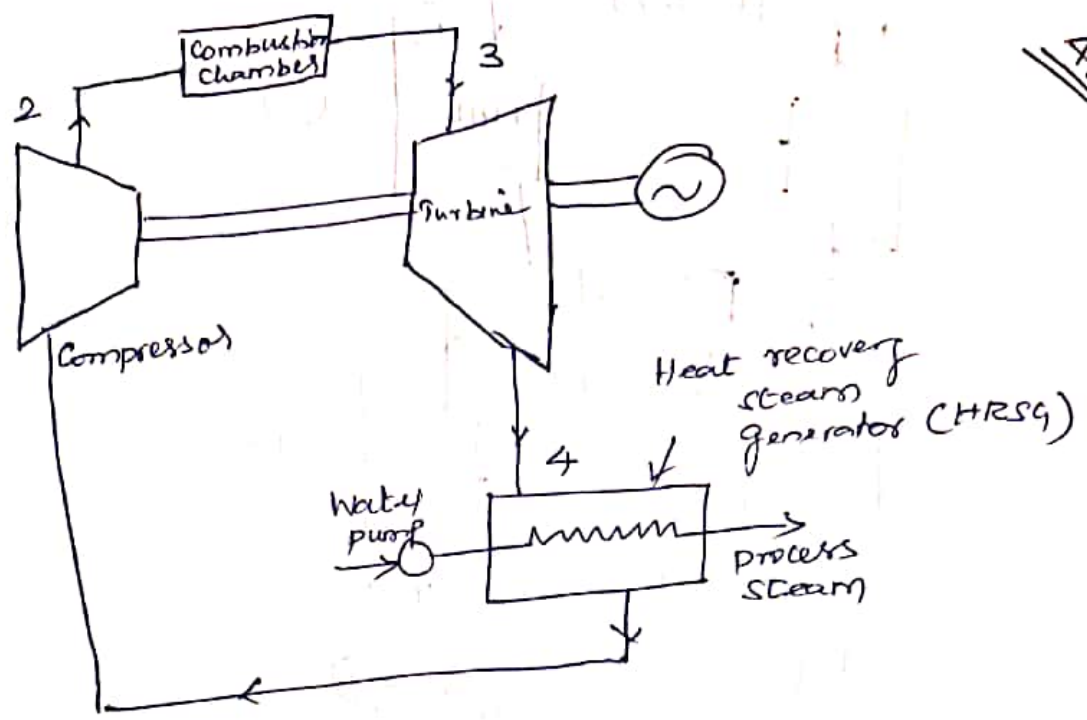 Combustion
chamber
2
3
Turbine
~
Compressor
Heat recovery
steam
generator (HRSG)
4
Water
pump
process
steam